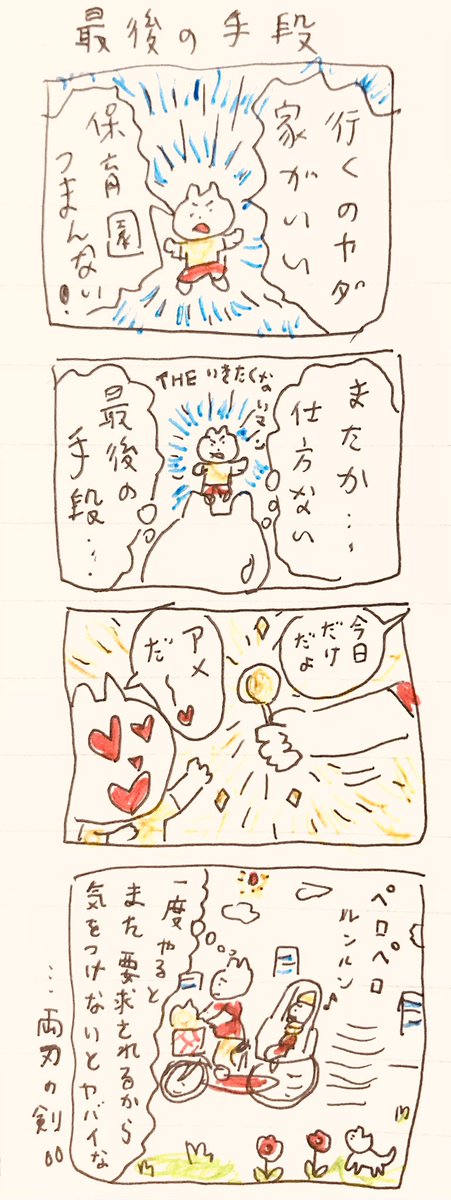 最後の手段
行くのヤダ
家がいい
保育園
つまんない!
またか…
仕方ない
THE いきたくないマン
最後の
手段…
今日
だけ
だよ
アメ
だ〜
ペロペロ
ルンルン
一度やると
また要求されるから
気をつけないとヤバイな
…両刃の剣